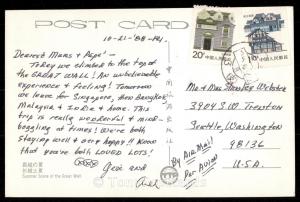 POST CARD
10-21-'88-Fri.
Dearest Mums & Pops'~
Today we climbed to the top of
the GREAT WALL! An unbelievable
experience & feeling! Tomorrow
we leave for Singapore, then Bangkok,
Malaysia & India & home. This
trip is really wonderful & mind-
boggling at times! We're both
staying well & very happy!! Know
that you're both LOVED LOTS!
XXXX Geri and
20分
中国人民邮政
10分
中国人民邮政
Mr & Mrs Webster
3909 S.W. Trenton
Seattle, Washington
98136
U.S.A.
By Air Mail
Par Avion
Summer Scene of the Great Wall